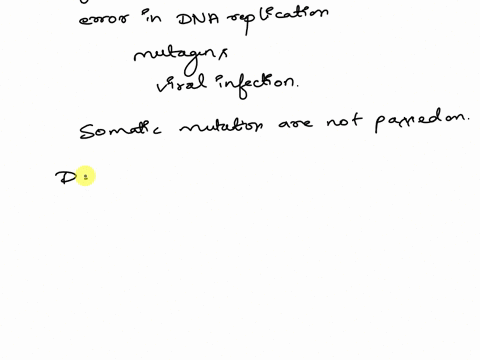 error in DNA replication
mutagens
viral infection.
Somatic mutation are not passed on.
D